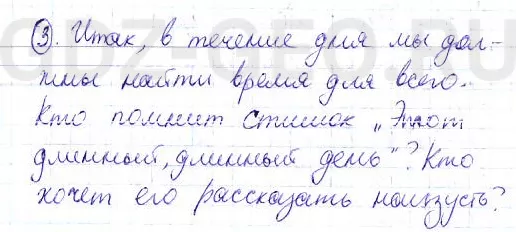 ③. Итак, в течение дня мы дол-
жны найти время для всего.
Кто помнит стишок „Этот
длинный, длинный день"? Кто
хочет его рассказать наизусть?